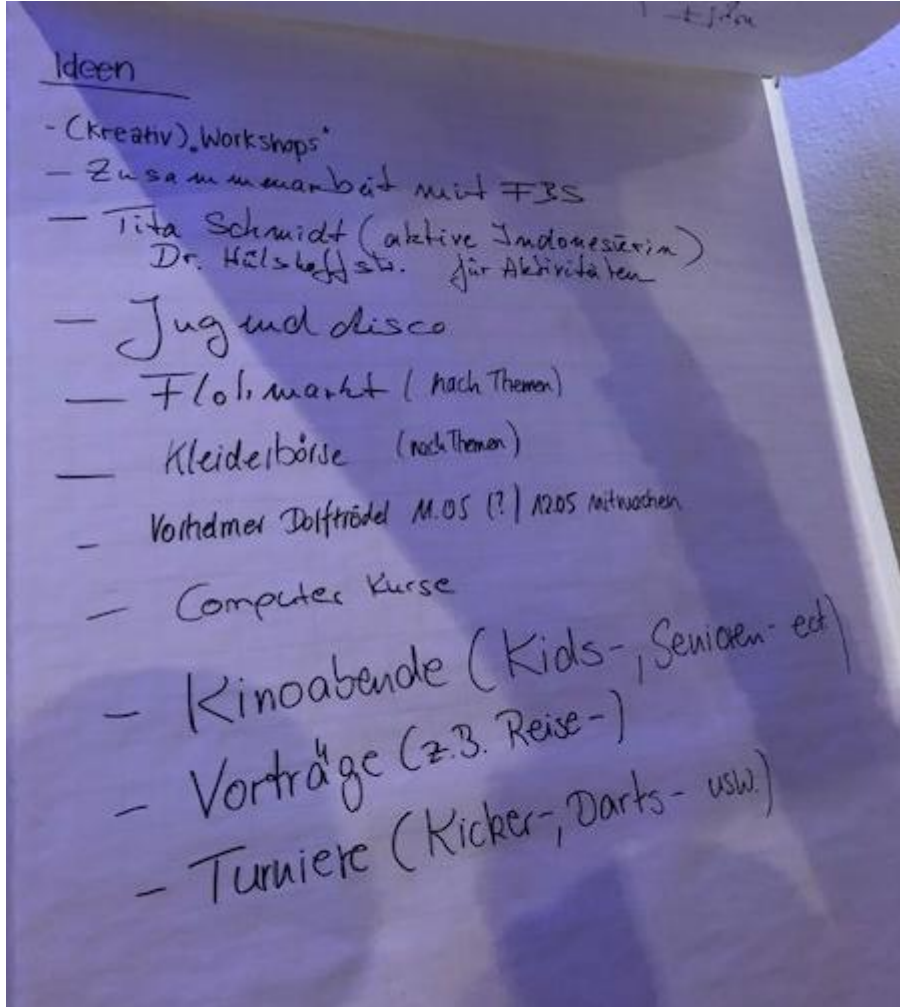 Ideen
- (Kreativ) „Workshops"
- Zusammenarbeit mit FBS
- Tita Schmidt (aktive Indonesierin)
Dr. Hülshoffstr. für Aktivitäten
- Jugenddisco
- Flohmarkt (nach Themen)
- Kleiderbörse (nach Themen)
- Vorhelmer Dorftrödel 11.05 (?) 12.05 mitmachen
- Computer Kurse
- Kinoabende (Kids-, Senioren- ect.)
- Vorträge (z.B. Reise-)
- Turniere (Kicker-, Darts- usw.)